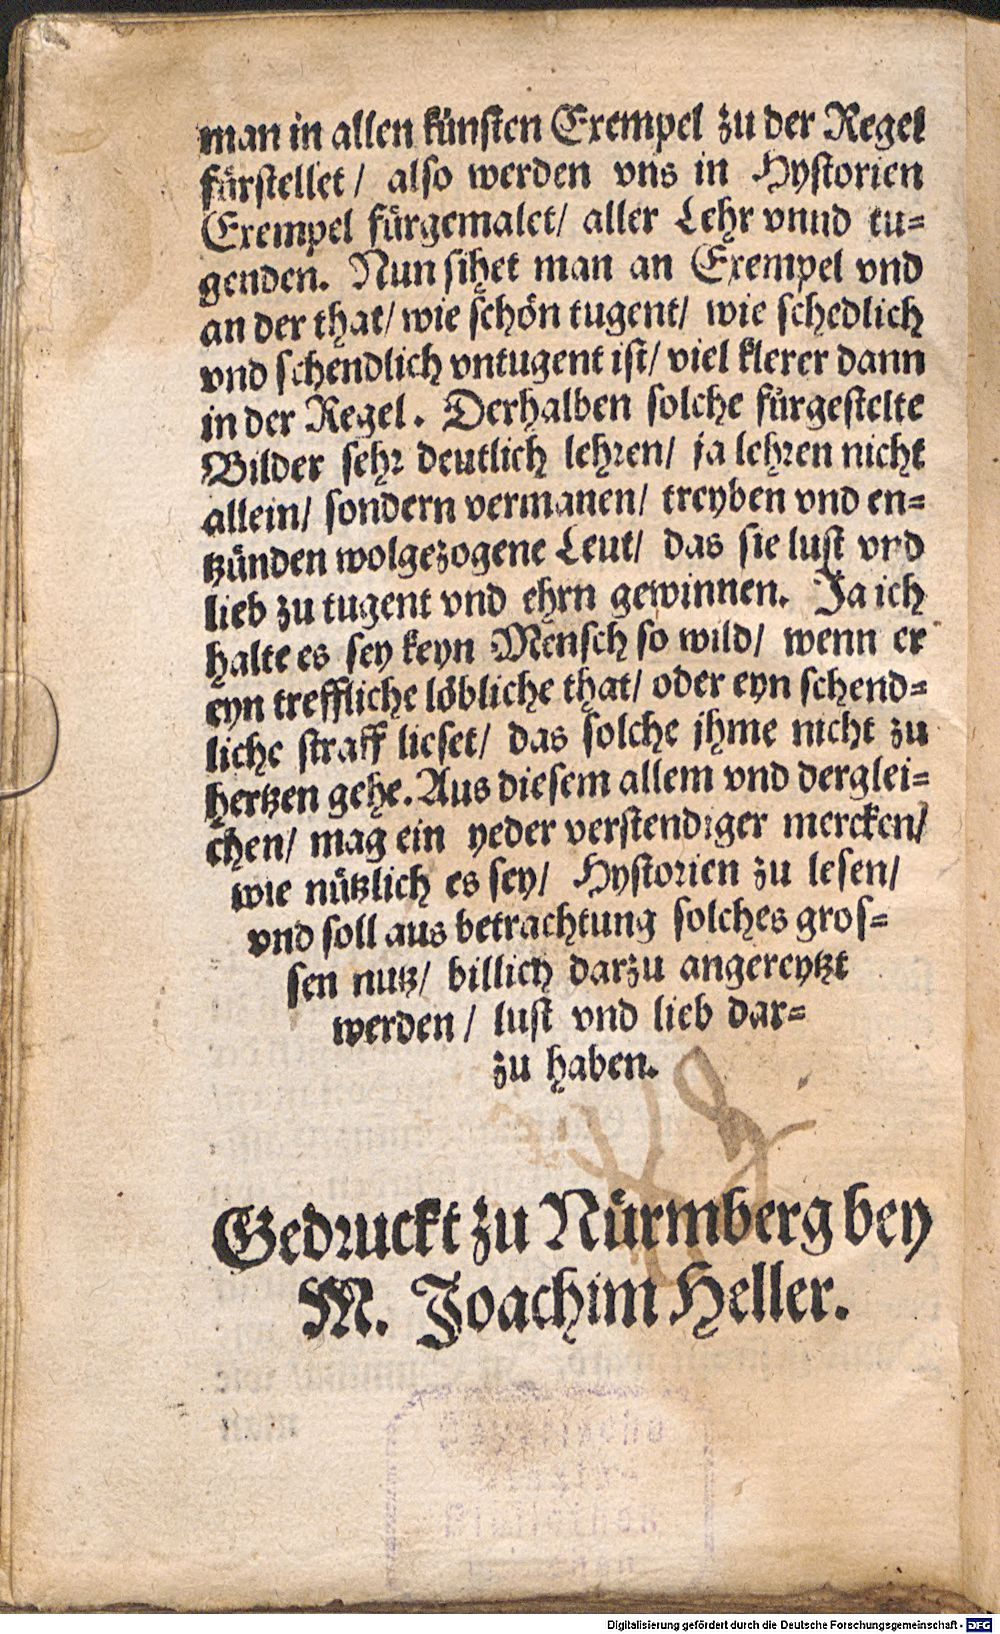 man in allen künsten Exempel zu der Regel
fürstellet / also werden vns in Hystorien
Exempel fürgemalet / aller Lehr vnnd tu=
genden. Nun sihet man an Exempel vnd
an der that / wie schön tugent / wie schedlich
vnd schendlich vntugent ist / viel klerer dann
in der Regel. Derhalben solche fürgestelte
Bilder sehr deutlich lehren / ja lehren nicht
allein / sondern vermanen / treyben vnd en=
tzünden wolgezogene Leut / das sie lust vnd
lieb zu tugent vnd ehrn gewinnen. Ja ich
halte es sey keyn Mensch so wild / wenn er
eyn treffliche löbliche that / oder eyn schend=
liche straff lieset / das solche jhme nicht zu
hertzen gehe. Aus diesem allem vnd derglei=
chen / mag ein yeder verstendiger mercken /
wie nützlich es sey / Hystorien zu lesen /
vnd soll aus betrachtung solches gros=
sen nutz / billich darzu angereytzt
werden / lust vnd lieb dar=
zu haben.
Gedruckt zu Nürmberg bey
M. Joachim Heller.
Digitalisierung gefördert durch die Deutsche Forschungsgemeinschaft - DFG